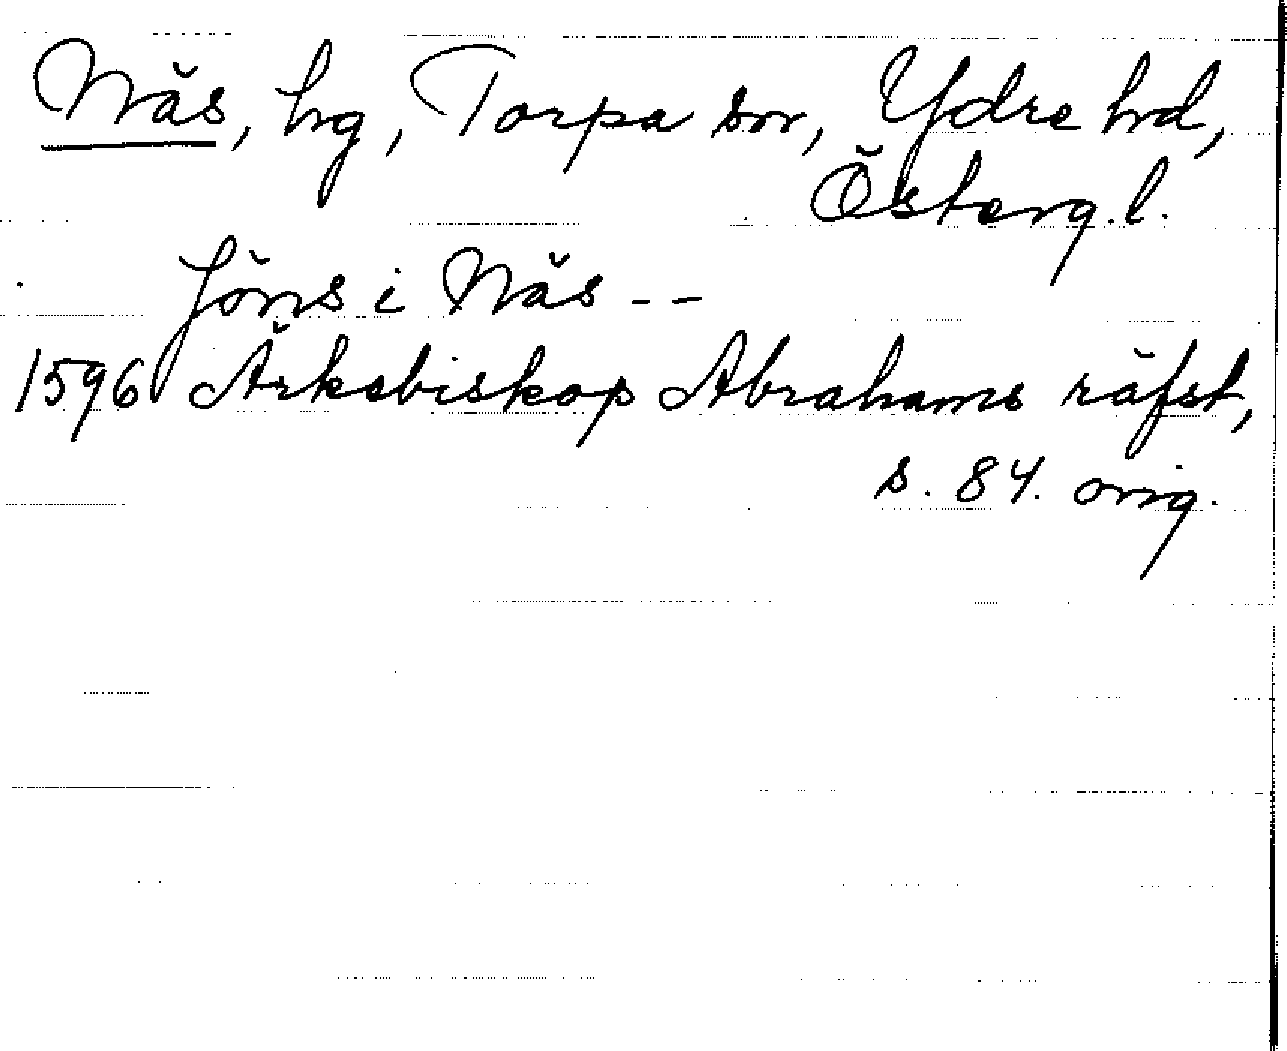 Näs, hg, Torpa sn, Ydre hd,
Österg. l.
Jöns i Näs --
1596 Ärkebiskop Abrahams räfst,
s. 84. orig.